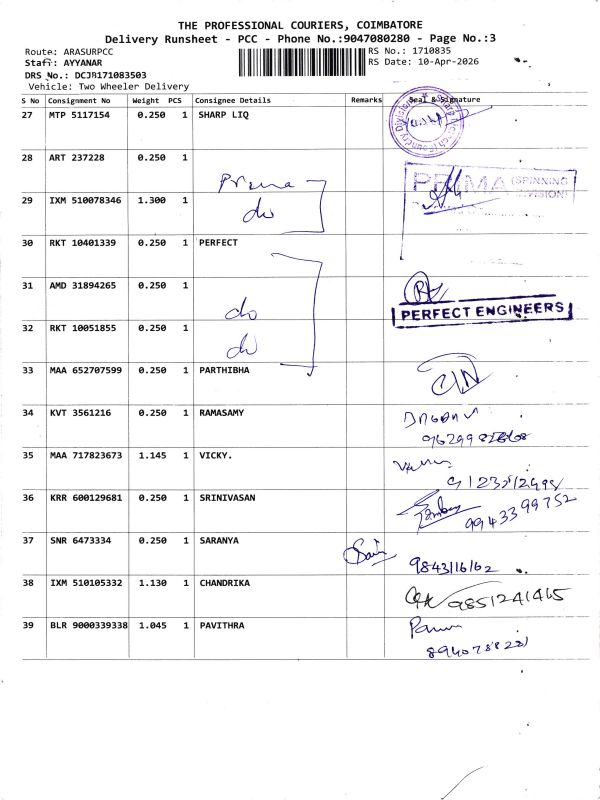 THE PROFESSIONAL COURIERS, COIMBATORE
Delivery Runsheet - PCC - Phone No.:9047080280 - Page No.:3
Route: ARASURPCC RS No.: 1710835
Staff: AYYANAR RS Date: 10-Apr-2026
DRS No.: DCJB171083503
Vehicle: Two Wheeler Delivery
S No Consignment No Weight PCS Consignee Details Remarks Seal & Signature
27 MTP 5117154 0.250 1 SHARP LIQ
28 ART 237228 0.250 1
Prima
PRIMA (SPINNING DIVISION)
29 IXM 510078346 1.300 1 do
30 RKT 10401339 0.250 1 PERFECT
31 AMD 31894265 0.250 1 do
PERFECT ENGINEERS
32 RKT 10051855 0.250 1 do
33 MAA 652707599 0.250 1 PARTHIBHA
34 KVT 3561216 0.250 1 RAMASAMY
35 MAA 717823673 1.145 1 VICKY.
36 KRR 600129681 0.250 1 SRINIVASAN
9943399752
37 SNR 6473334 0.250 1 SARANYA
9843116162
38 IXM 510105332 1.130 1 CHANDRIKA
9851241465
39 BLR 9000339338 1.045 1 PAVITHRA